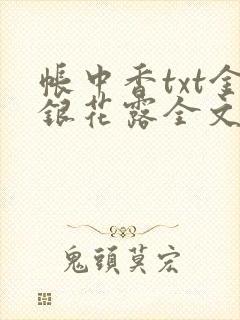 帳中香txt金
銀花露全文
鬼頭莫宏